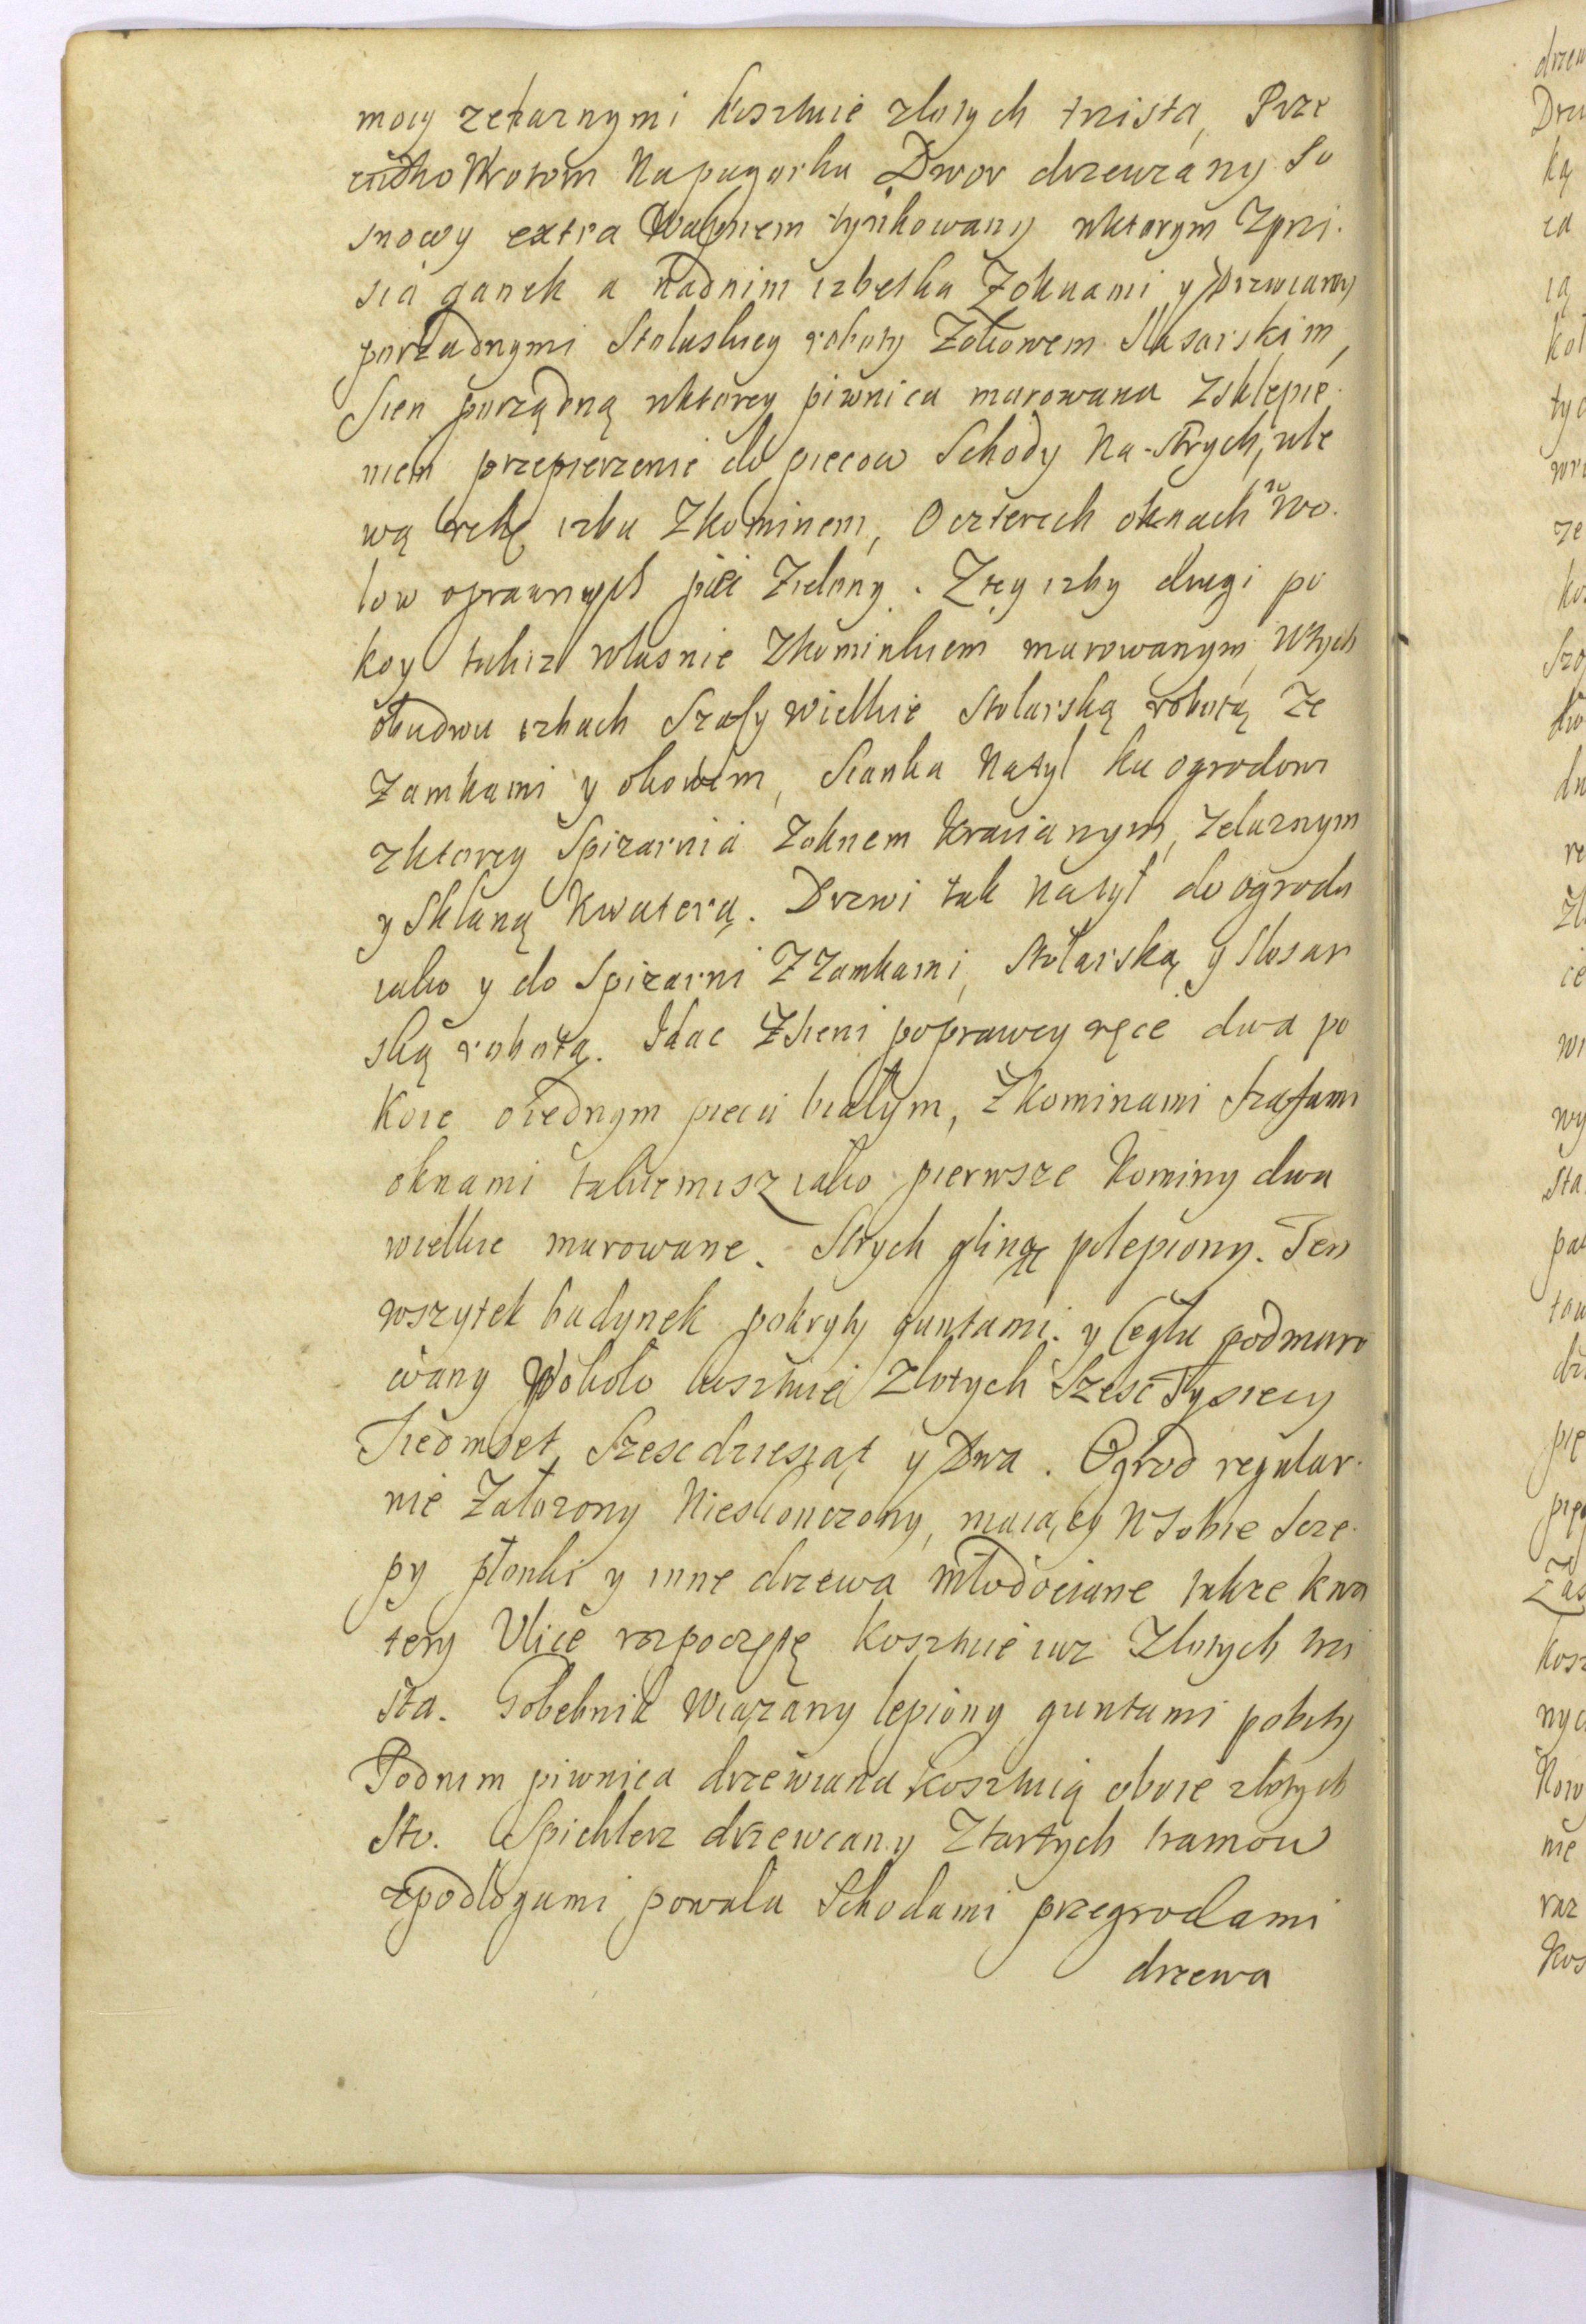 mocy zelaznymi kosztuie złotych trzista, Prze
ciwko Wrotom Na pagorku Dwor drzewiany So
snowy extra Wapnem tynkowany wktorym Zprzi.
sia ganek a nadnim izbetka Zoknami y Drzwiamy
porządnymi Stolarskiey roboty Zokowem Slusarskim,
Sien porządną wktorey piwnica murowana Zsklepie.
niem przepierzenie do piecow Schody Na-Strych, wle
wą rękę izba Zkominem, O czterech oknach w wo.
low oprawnych piec Zielony. Ztey izby drugi po
koy takiz własnie Zkominkiem murowanym, Wtych
obudwu izbach Szafy wielkie Stolarską robotą Ze
Zamkami y okowem, Sianka Natył ku ogrodowi
zktorey Spizarnia Zoknem Kracianym, zelaznym
y Sklaną Kwaterą. Drzwi tak natył do ogrodu
iako y do Spizarni Z Zamkami, Stolarską y Slosar
ską robotą. Idac Zsieni poprawey ręce dwa po
koie oiednym piecu białym, Zkominami Szafami
oknami takiemisz iako pierwsze Kominy dwa
wielkie murowane. Strych gliną polepiony. Ten
wszytek budynek pokryty guntami y Cegłu podmuro
wany Wokoło kosztuie Złotych Szesc Tysiecy
Siedmset Szescdziesiąt y Dwa. Ogrod regular.
nie Załozony Nieskonczony, maiący W Sobie Szcze.
py płonki y inne drzewa młodociane także kwa
tery Ulice rozpoczętę Kosztuie iuz Złotych trzi
sta. Gołebnik Wiązany lepiony guntami pobity
Podnim piwnica drzewiana kosztuią oboie złotych
Sto. Spichlerz drzewiany Ztartych tramow
zpodłogami powała Schodami przegrodami
drzewa